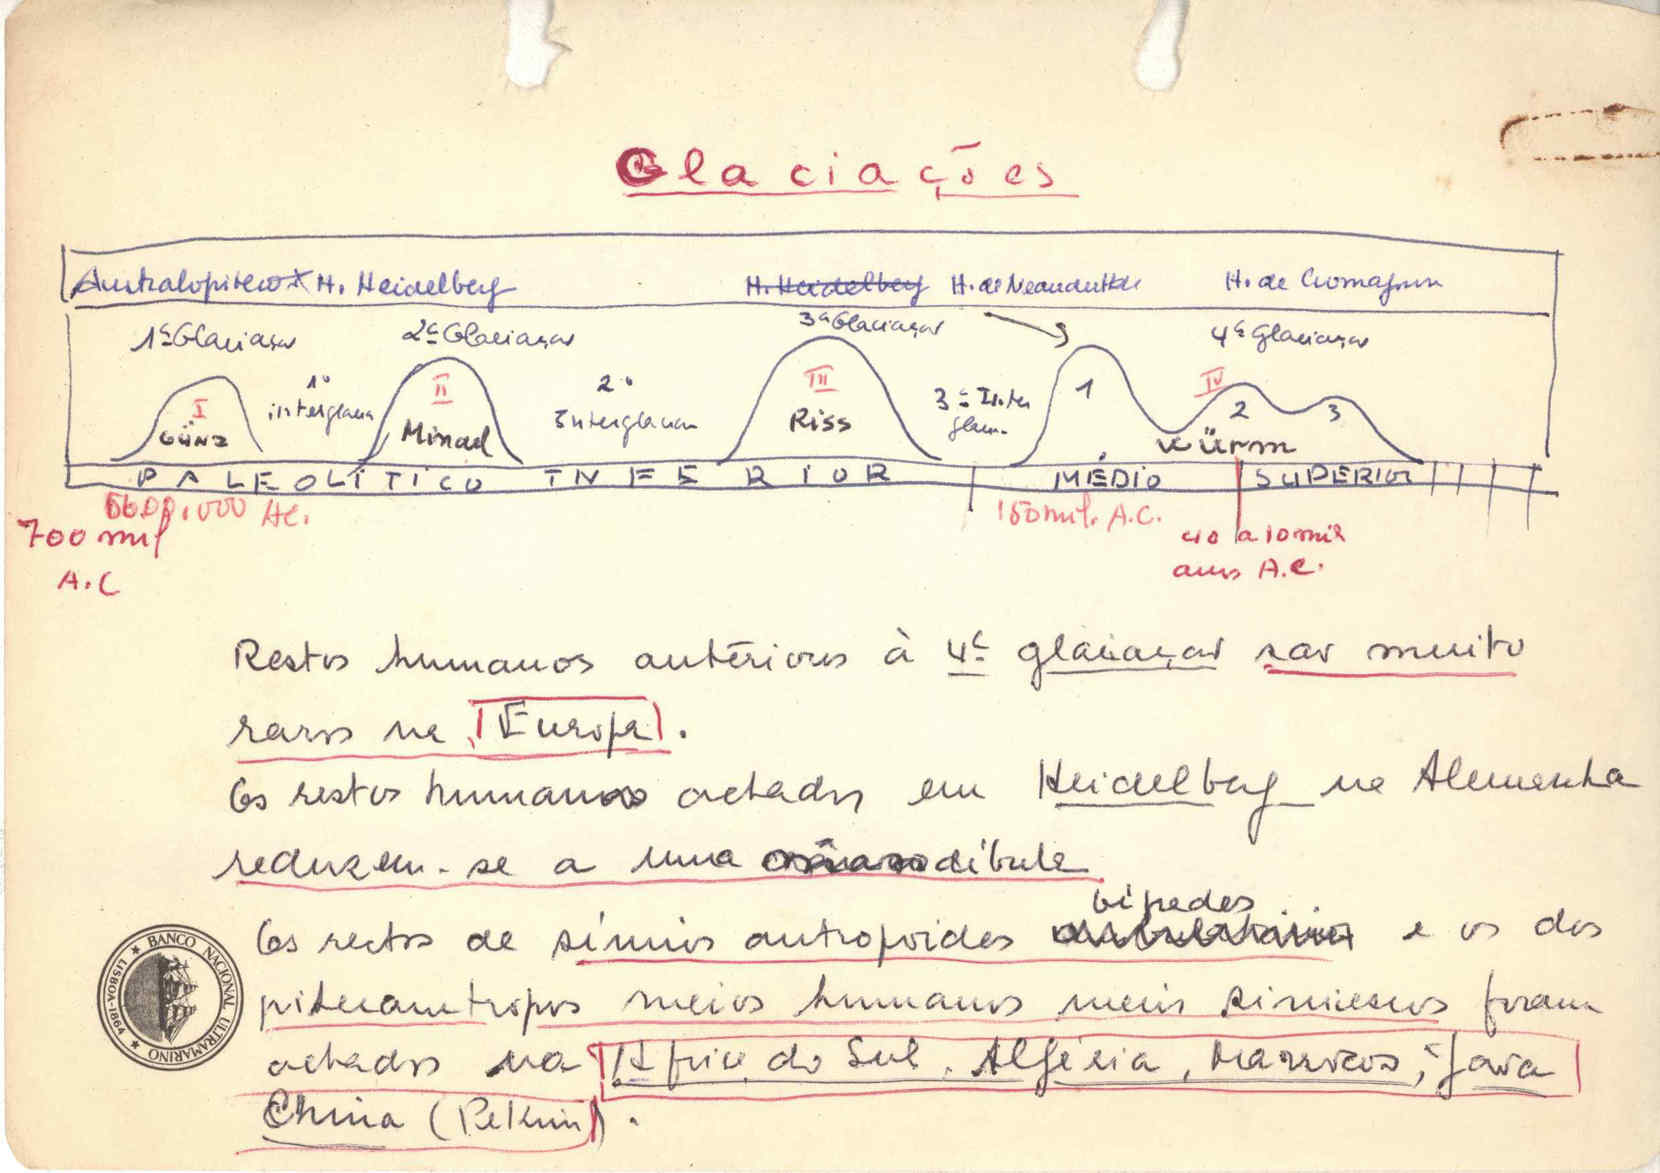 Glaciações
Australopiteco H. Heidelberg H. Heidelberg H. de Neanderthal H. de Cromagnon
1ª Glaciação 2ª Glaciação 3ª Glaciação 4ª Glaciação
I 1º interglaciar II 2º Interglaciar III 3º Inter glac. 1 IV 2 3
Günz Mindel Riss Würm
PALEOLÍTICO INFERIOR MÉDIO SUPERIOR
600.000 AC. 150 mil. A.C.
700 mil A.C
40 a 10 mil
anos A.C.
Restos humanos antériores à 4ª glaciação sao muito
raros na Europa.
Os restos humanos achados em Heidelberg na Alemanha
reduzem-se a uma mandíbula
bípedes
Os restos de símios antropoides e os dos
pitecantropos meios humanos meis simiescos foram
achados na Africa do Sul, Algéria, Marrocos, Java
China (Pekim).
BANCO NACIONAL ULTRAMARINO
LISBOA-1864